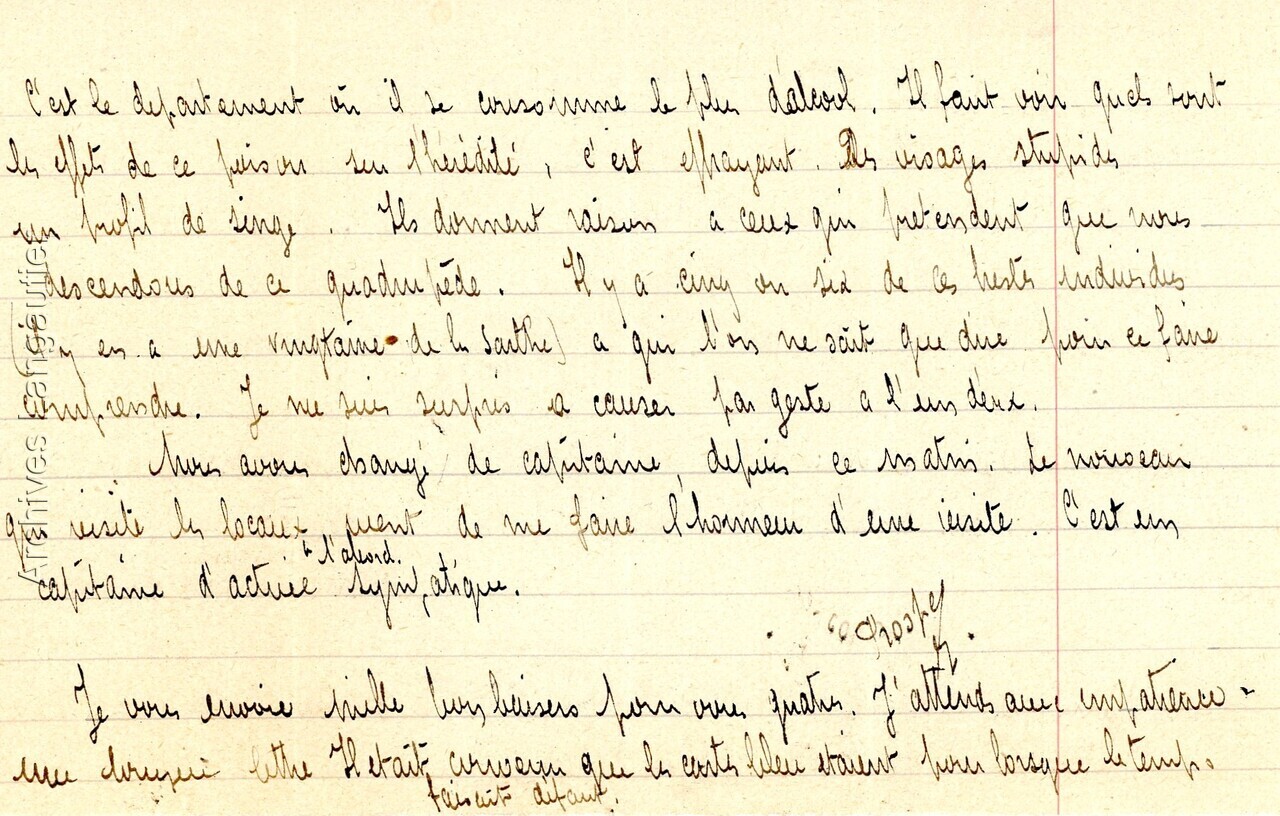 C'est le departement où il se consomme le plus d'alcool. Il faut voir quels sont
les effets de ce poison sur l'hérédité, c'est effrayant. Des visages stupides
un profil de singe. Ils donnent raison a ceux qui pretendent que nous
descendons de ce quadrupède. Il y a cinq ou six de ces individus
y en a une vingtaine de la Sarthe) a qui l'on ne sait que dire pour ce faire
comprendre. Je me suis surpris a causer par geste a l'un deux.
Nous avons changé de capitaine, depuis ce matin. Le nouveau
qui visite les locaux vient de me faire l'honneur d'une visite. C'est un
à l'abord.
capitaine d'active sympatique.
Prosper
Je vous envoie mille bons baisers pour vous quatre. J'attends avec impatience
une longue lettre Il était convenu que les cartes bleu étaient pour lorsque le temps
faisait défaut.
Archives Langoutier